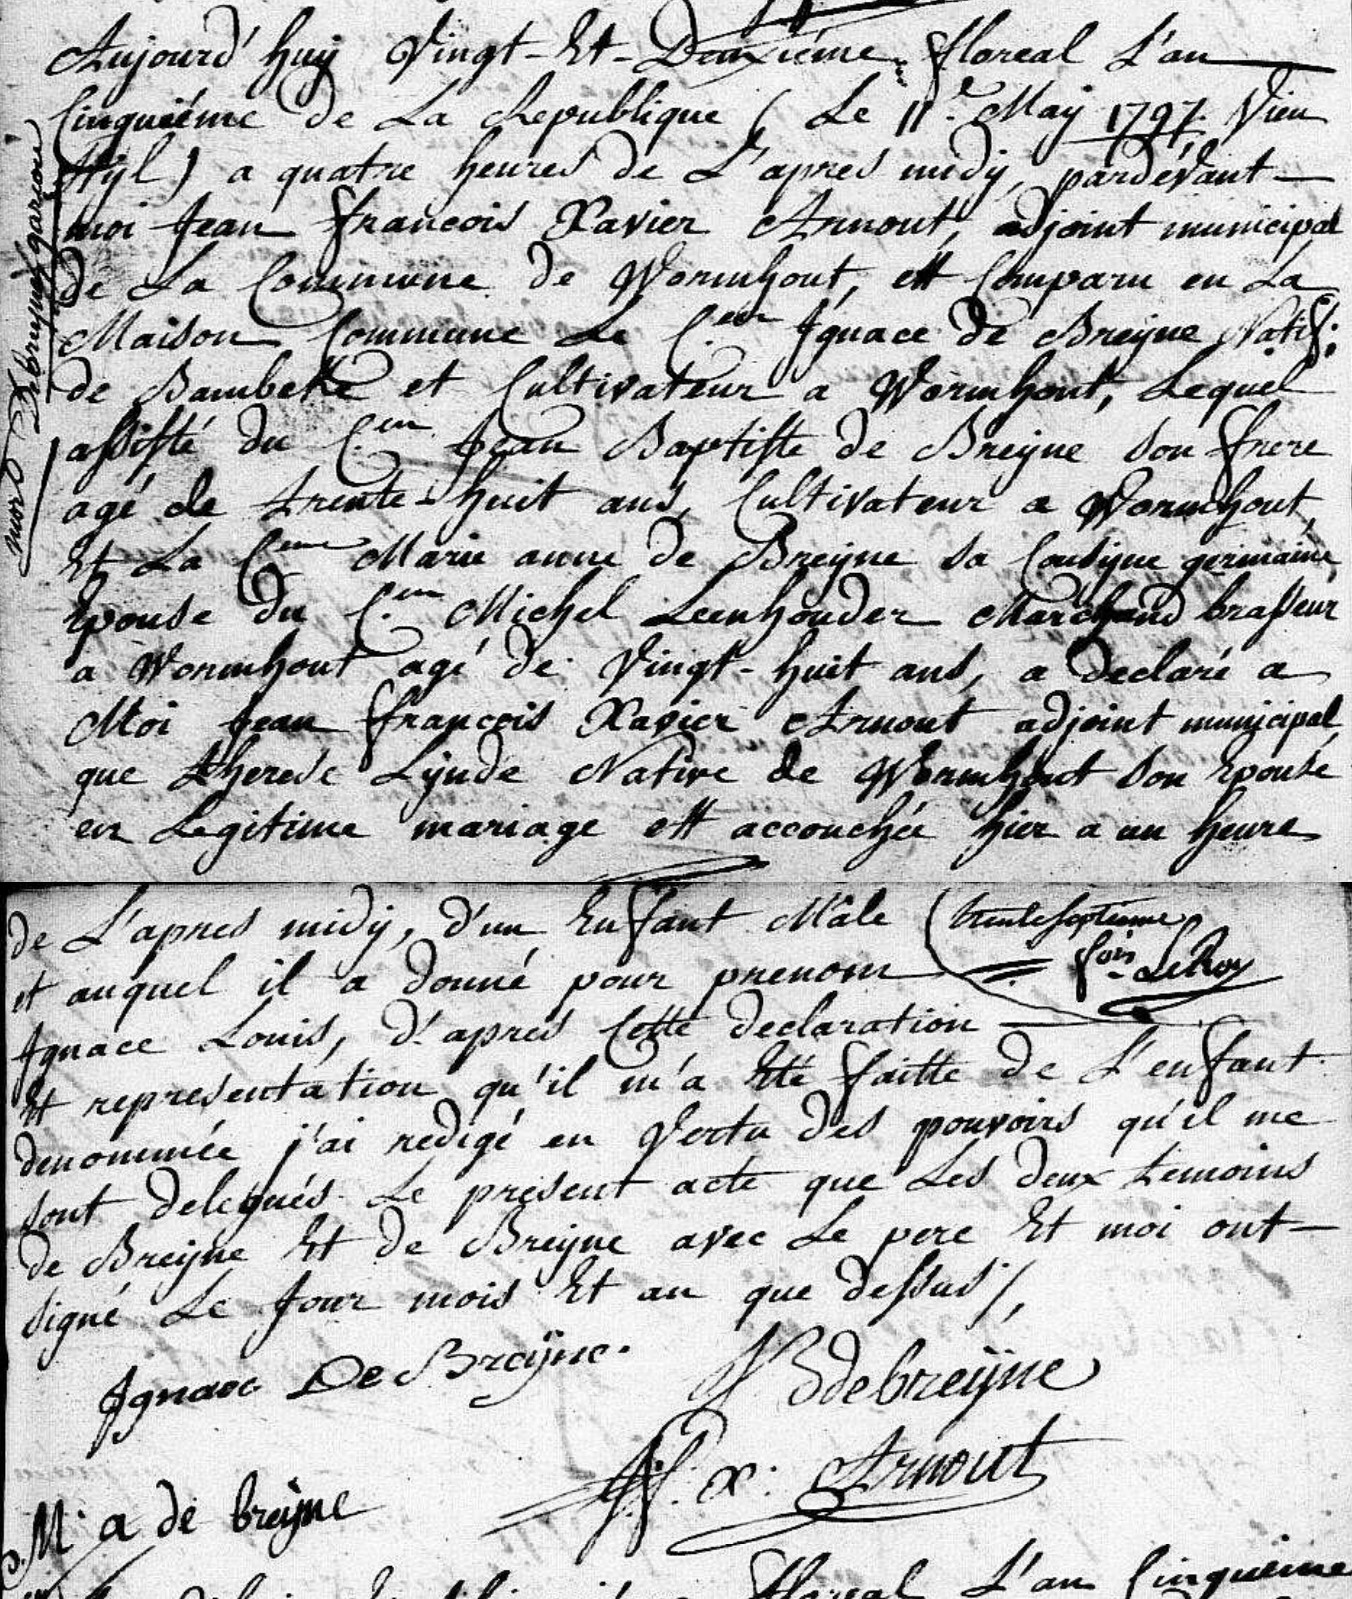 Aujourd'huy Vingt-Et-Deuxiéme floreal L'an
Cinquiéme de La Republique ( Le 11.e May 1797. Vieu
Styl ) a quatre heures de L'aprés midy, pardévant
moi Jean françois Xavier Arnout, adjoint municipal
de La Commune de Wormhout, est Comparu en La
Maison Commune Le C.en Ignace de Breÿne Natif
de Bambeke et Cultivateur a Wormhout, Lequel
assisté du C.en Jean Baptiste de Breÿne son frere
agé de trente-huit ans, Cultivateur a Wormhout,
Et La C.enne Marie anne de Breÿne sa Cousyne germaine,
Epouse du C.en Michel Leenhouder Marchand brasseur
a Wormhout agé de Vingt-huit ans, a declaré a
Moi Jean françois Xavier Arnout adjoint municipal,
que therese Lynde Native de Wormhout son Epouse
en Legitime mariage est accouchée hier a un heure
de L'aprés midy, d'un Enfant Mâle
et auquel il a donné pour prenom
Ignace Louis, d'aprés Cette declaration
Et representation qu'il m'a Eté faitte de L'enfant
denommée j'ai redigé en Vertu des pouvoirs qu'il me
sont delegués Le present acte que Les deux temoins
de Breÿne Et de Breÿne avec Le pere Et moi ont
signé Le Jour mois Et an que dessus /,
trente septieme
foi
LeRoy
Ignace De Breÿne.
J B debreÿne
J f. x. Arnout
M. a de breÿne
floreal L'an Cinquiéme